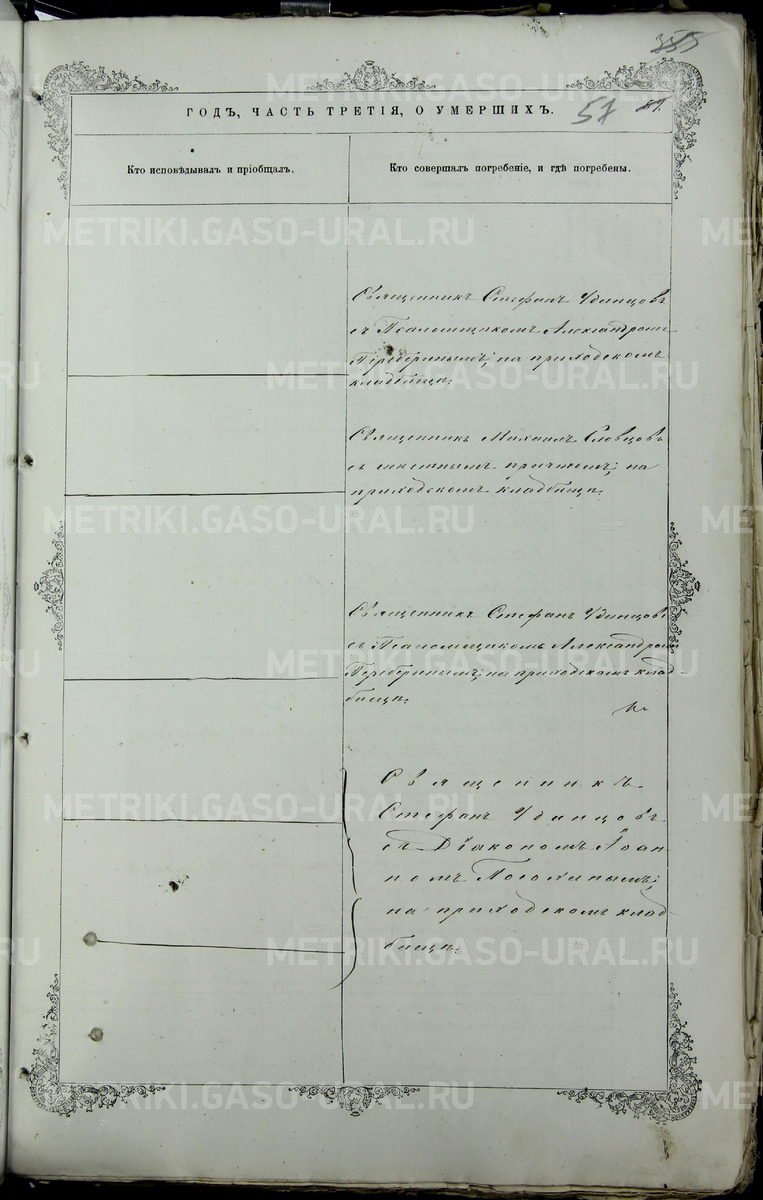 355
ГОДЪ, ЧАСТЬ ТРЕТІЯ, О УМЕРШИХЪ.
57
Кто исповѣдывалъ и пріобщалъ.
Кто совершалъ погребеніе, и гдѣ погребены.
Священникъ Стефанъ Удинцовъ
съ Псаломщикомъ Александромъ
на приходскомъ
кладбищѣ.
Священникъ Михаилъ Словцовъ
съ причтомъ; на
приходскомъ кладбищѣ.
Священникъ Стефанъ Удинцовъ
съ Псаломщикомъ Александромъ
на приходскомъ клад-
бищѣ.
Священникъ
Стефанъ Удинцовъ
съ Діакономъ Іоан-
номъ
на приходскомъ клад-
бищѣ.
METRIKI.GASO-URAL.RU